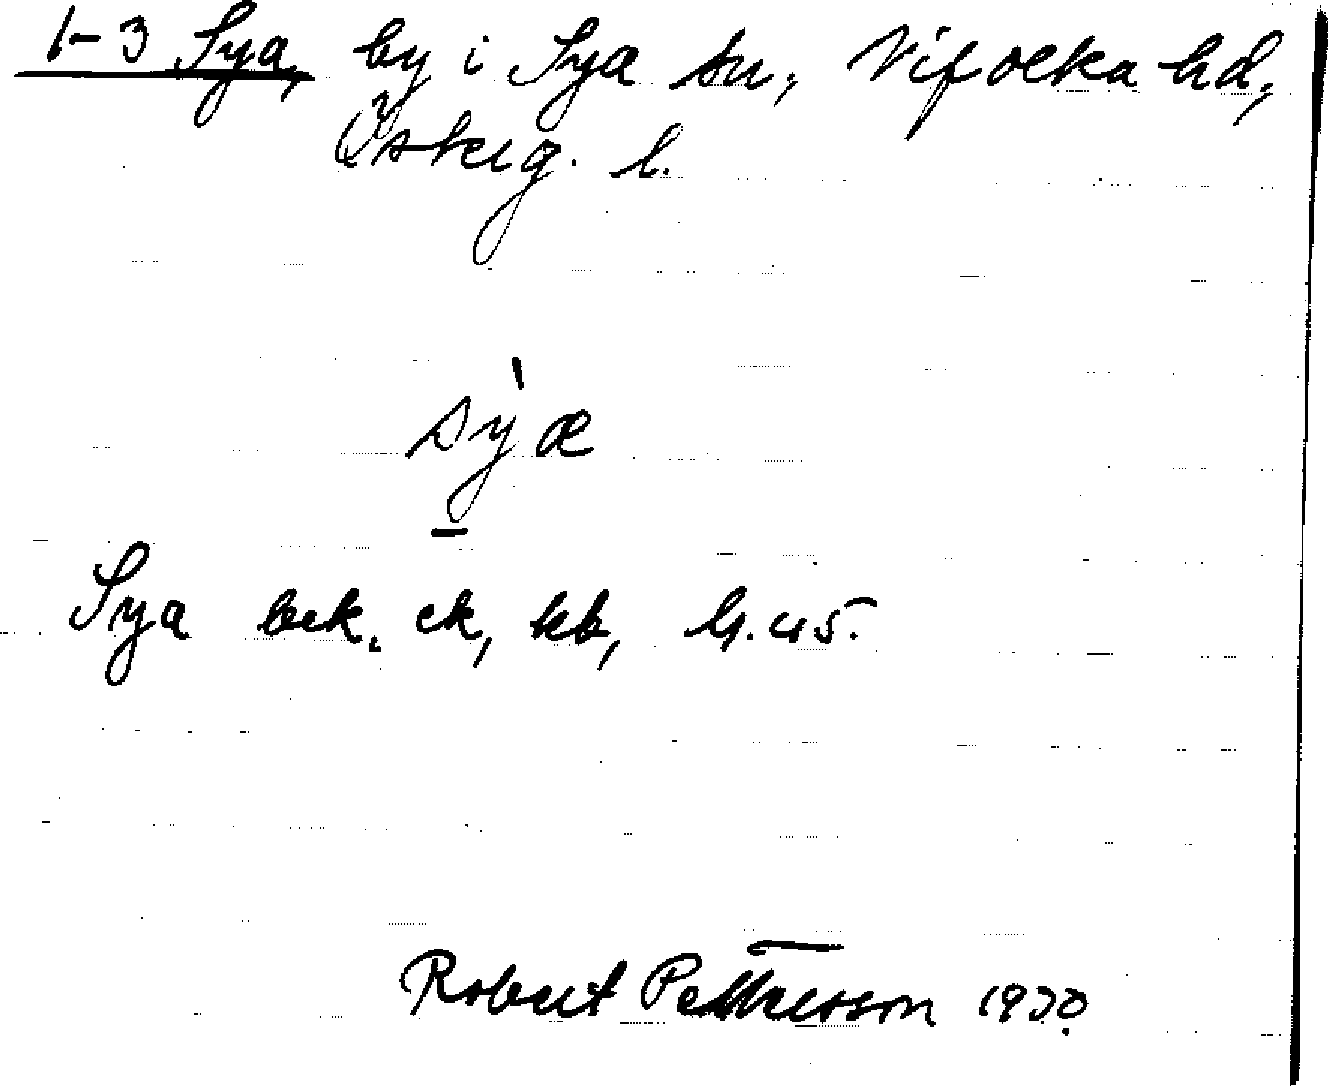 1-3 Sya, by i Sya sn, Vifolka hd,
Österg. l.
sỳa
Sya bek. ek, kb, G. 45.
Robert Pettersson 1930.